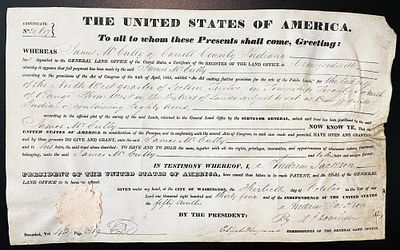 THE UNITED STATES OF AMERICA.
CERTIFICATE
To all to whom these Presents shall come, Greeting:
WHEREAS James McCulty of Carroll County Indiana
ha deposited in the GENERAL LAND OFFICE of the United States, a Certificate of the REGISTER OF THE LAND OFFICE at Crawfordsville
whereby it appears that full payment has been made by the said James McCulty
according to the provisions of the Act of Congress of the 24th of April, 1820, entitled "An Act making further provision for the sale of the Public Lands," for the
of the North West quarter of Section twelve in Township
Indiana containing Eighty acres
according to the official plat of the survey of the said Lands, returned to the General Land Office by the SURVEYOR GENERAL, which said tract has been purchased by the said
James McCulty
NOW KNOW YE, That the
UNITED STATES OF AMERICA, in consideration of the Premises, and in conformity with the several Acts of Congress, in such case made and provided, HAVE GIVEN AND GRANTED,
and by these presents DO GIVE AND GRANT, unto the said James McCulty
and to his heirs, the said tract above described: TO HAVE AND TO HOLD the same, together with all the rights, privileges, immunities, and appurtenances of whatsoever nature, thereunto
belonging, unto the said James McCulty and to his heirs and assigns forever.
IN TESTIMONY WHEREOF, I, Andrew Jackson
PRESIDENT OF THE UNITED STATES OF AMERICA, have caused these Letters to be made PATENT, and the SEAL of the GENERAL
LAND OFFICE to be hereunto affixed.
GIVEN under my hand, at the CITY OF WASHINGTON, the Thirtieth day of October in the Year of our
Lord one thousand eight hundred and thirty four and of the INDEPENDENCE OF THE UNITED STATES
the fifty ninth
BY THE PRESIDENT: Andrew Jackson
By A. J. Donelson Sec'y
Elijah Hayward COMMISSIONER OF THE GENERAL LAND OFFICE.
Recorded, Vol. 42 Page